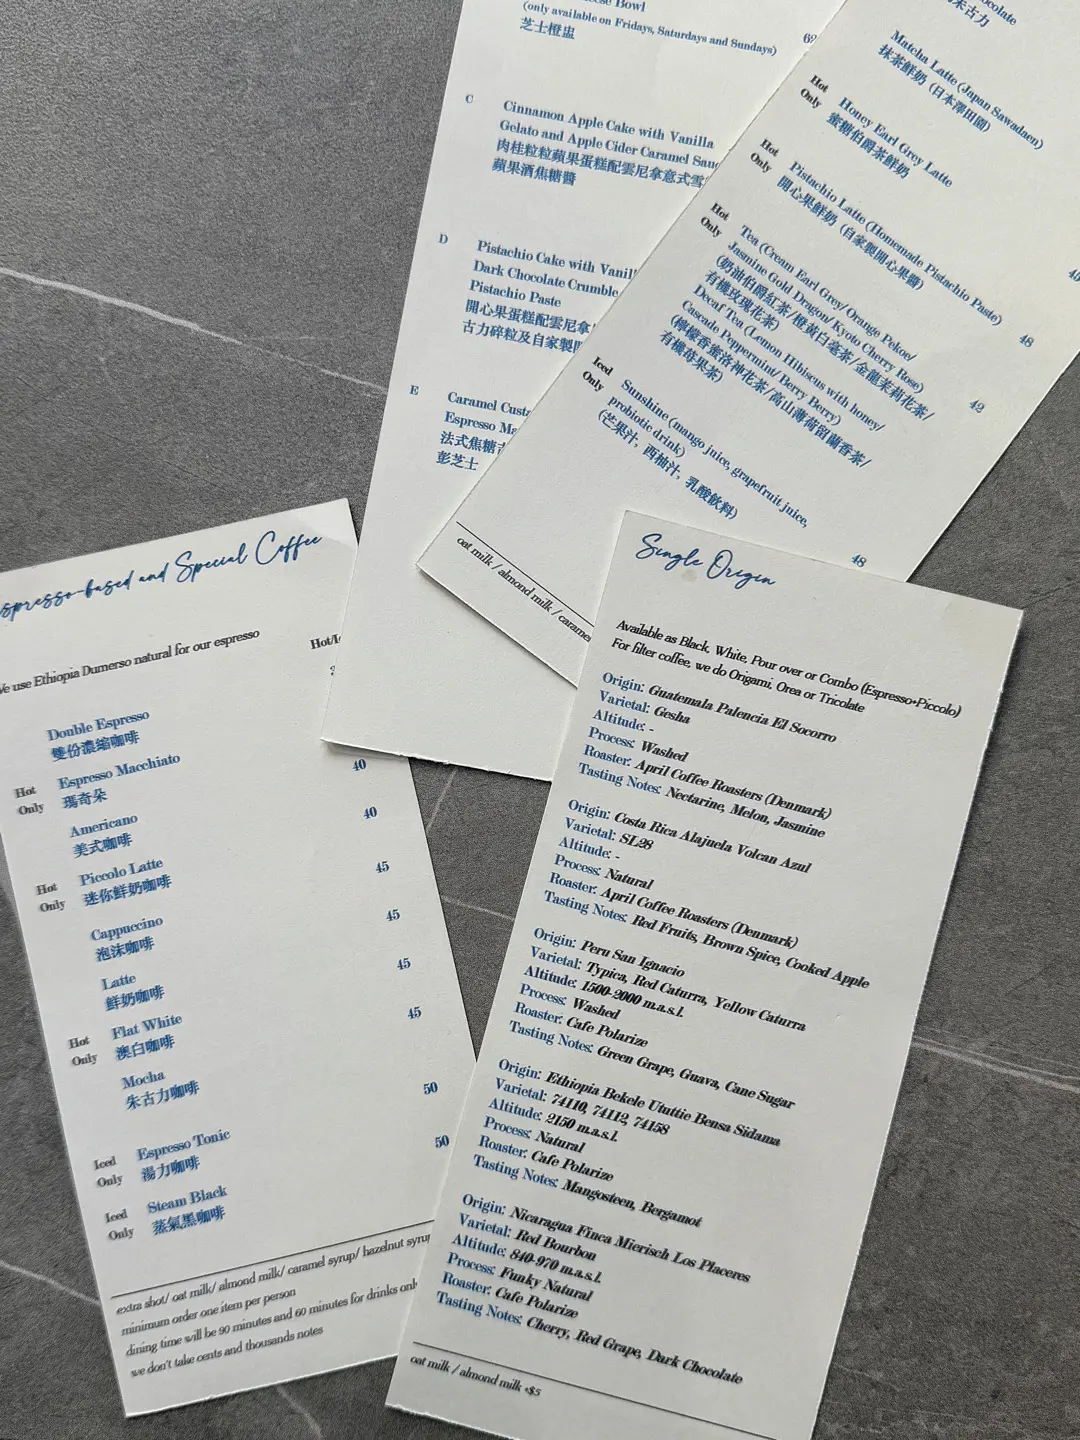 (only available on Fridays, Saturdays and Sundays)
芝士橙盅
C
Cinnamon Apple Cake with Vanilla
Gelato and Apple Cider Caramel
肉桂粒粒蘋果蛋糕配雲尼拿意式雪
蘋果酒焦糖醬
D
Pistachio Cake with
Dark Chocolate Crumble
Pistachio Paste
開心果蛋糕配雲尼拿
古力碎粒及自家製
E
Caramel
Espresso
法式焦糖
彭芝士
Matcha Latte (Japan Sawadaen)
抹茶鮮奶 (日本澤田園)
Hot
Only
Honey Earl Grey Latte
蜜糖伯爵茶鮮奶
Hot
Only
Pistachio Latte (Homemade Pistachio Paste)
開心果鮮奶 (自家製開心果醬)
48
Hot
Only
Tea (Cream Earl Grey/ Orange Pekoe/
Jasmine Gold Dragon/ Kyoto Cherry Rose)
(奶油伯爵紅茶/橙黃白毫茶/金龍茉莉花茶/
有機玫瑰花茶)
Decaf Tea (Lemon Hibiscus with honey/
Cascade Peppermint/ Berry Berry)
(檸檬香蜜洛神花茶/高山薄荷留蘭香茶/
有機莓果茶)
42
Iced
Only
Sunshine (mango juice, grapefruit juice,
probiotic drink)
(芒果汁, 西柚汁, 乳酸飲料)
48
oat milk / almond milk /
Espresso-based and Special Coffee
We use Ethiopia Dumerso natural for our espresso
Double Espresso
雙份濃縮咖啡
Hot
Only
Espresso Macchiato
瑪奇朵
40
Americano
美式咖啡
40
Hot
Only
Piccolo Latte
迷你鮮奶咖啡
45
Cappuccino
泡沫咖啡
45
Latte
鮮奶咖啡
45
Hot
Only
Flat White
澳白咖啡
45
Mocha
朱古力咖啡
50
Iced
Only
Espresso Tonic
湯力咖啡
50
Iced
Only
Steam Black
蒸氣黑咖啡
extra shot/ oat milk/ almond milk/ caramel syrup/ hazelnut
minimum order one item per person
dining time will be 90 minutes and 60 minutes for drinks
we don't take cents and thousands notes
Single Origin
Available as Black, White, Pour over or Combo (Espresso+Piccolo)
For filter coffee, we do Origami, Orea or Tricolate
Origin: Guatemala Palencia El Socorro
Varietal: Gesha
Altitude: -
Process: Washed
Roaster: April Coffee Roasters (Denmark)
Tasting Notes: Nectarine, Melon, Jasmine
Origin: Costa Rica Alajuela Volcan Azul
Varietal: SL28
Altitude: -
Process: Natural
Roaster: April Coffee Roasters (Denmark)
Tasting Notes: Red Fruits, Brown Spice, Cooked Apple
Origin: Peru San Ignacio
Varietal: Typica, Red Caturra, Yellow Caturra
Altitude: 1500-2000 m.a.s.l.
Process: Washed
Roaster: Cafe Polarize
Tasting Notes: Green Grape, Guava, Cane Sugar
Origin: Ethiopia Bekele Ututtie Bensa Sidama
Varietal: 74110, 74112, 74158
Altitude: 2150 m.a.s.l.
Process: Natural
Roaster: Cafe Polarize
Tasting Notes: Mangosteen, Bergamot
Origin: Nicaragua Finca Mierisch Los Placeres
Varietal: Red Bourbon
Altitude: 840-970 m.a.s.l.
Process: Funky Natural
Roaster: Cafe Polarize
Tasting Notes: Cherry, Red Grape, Dark Chocolate
oat milk / almond milk +$5